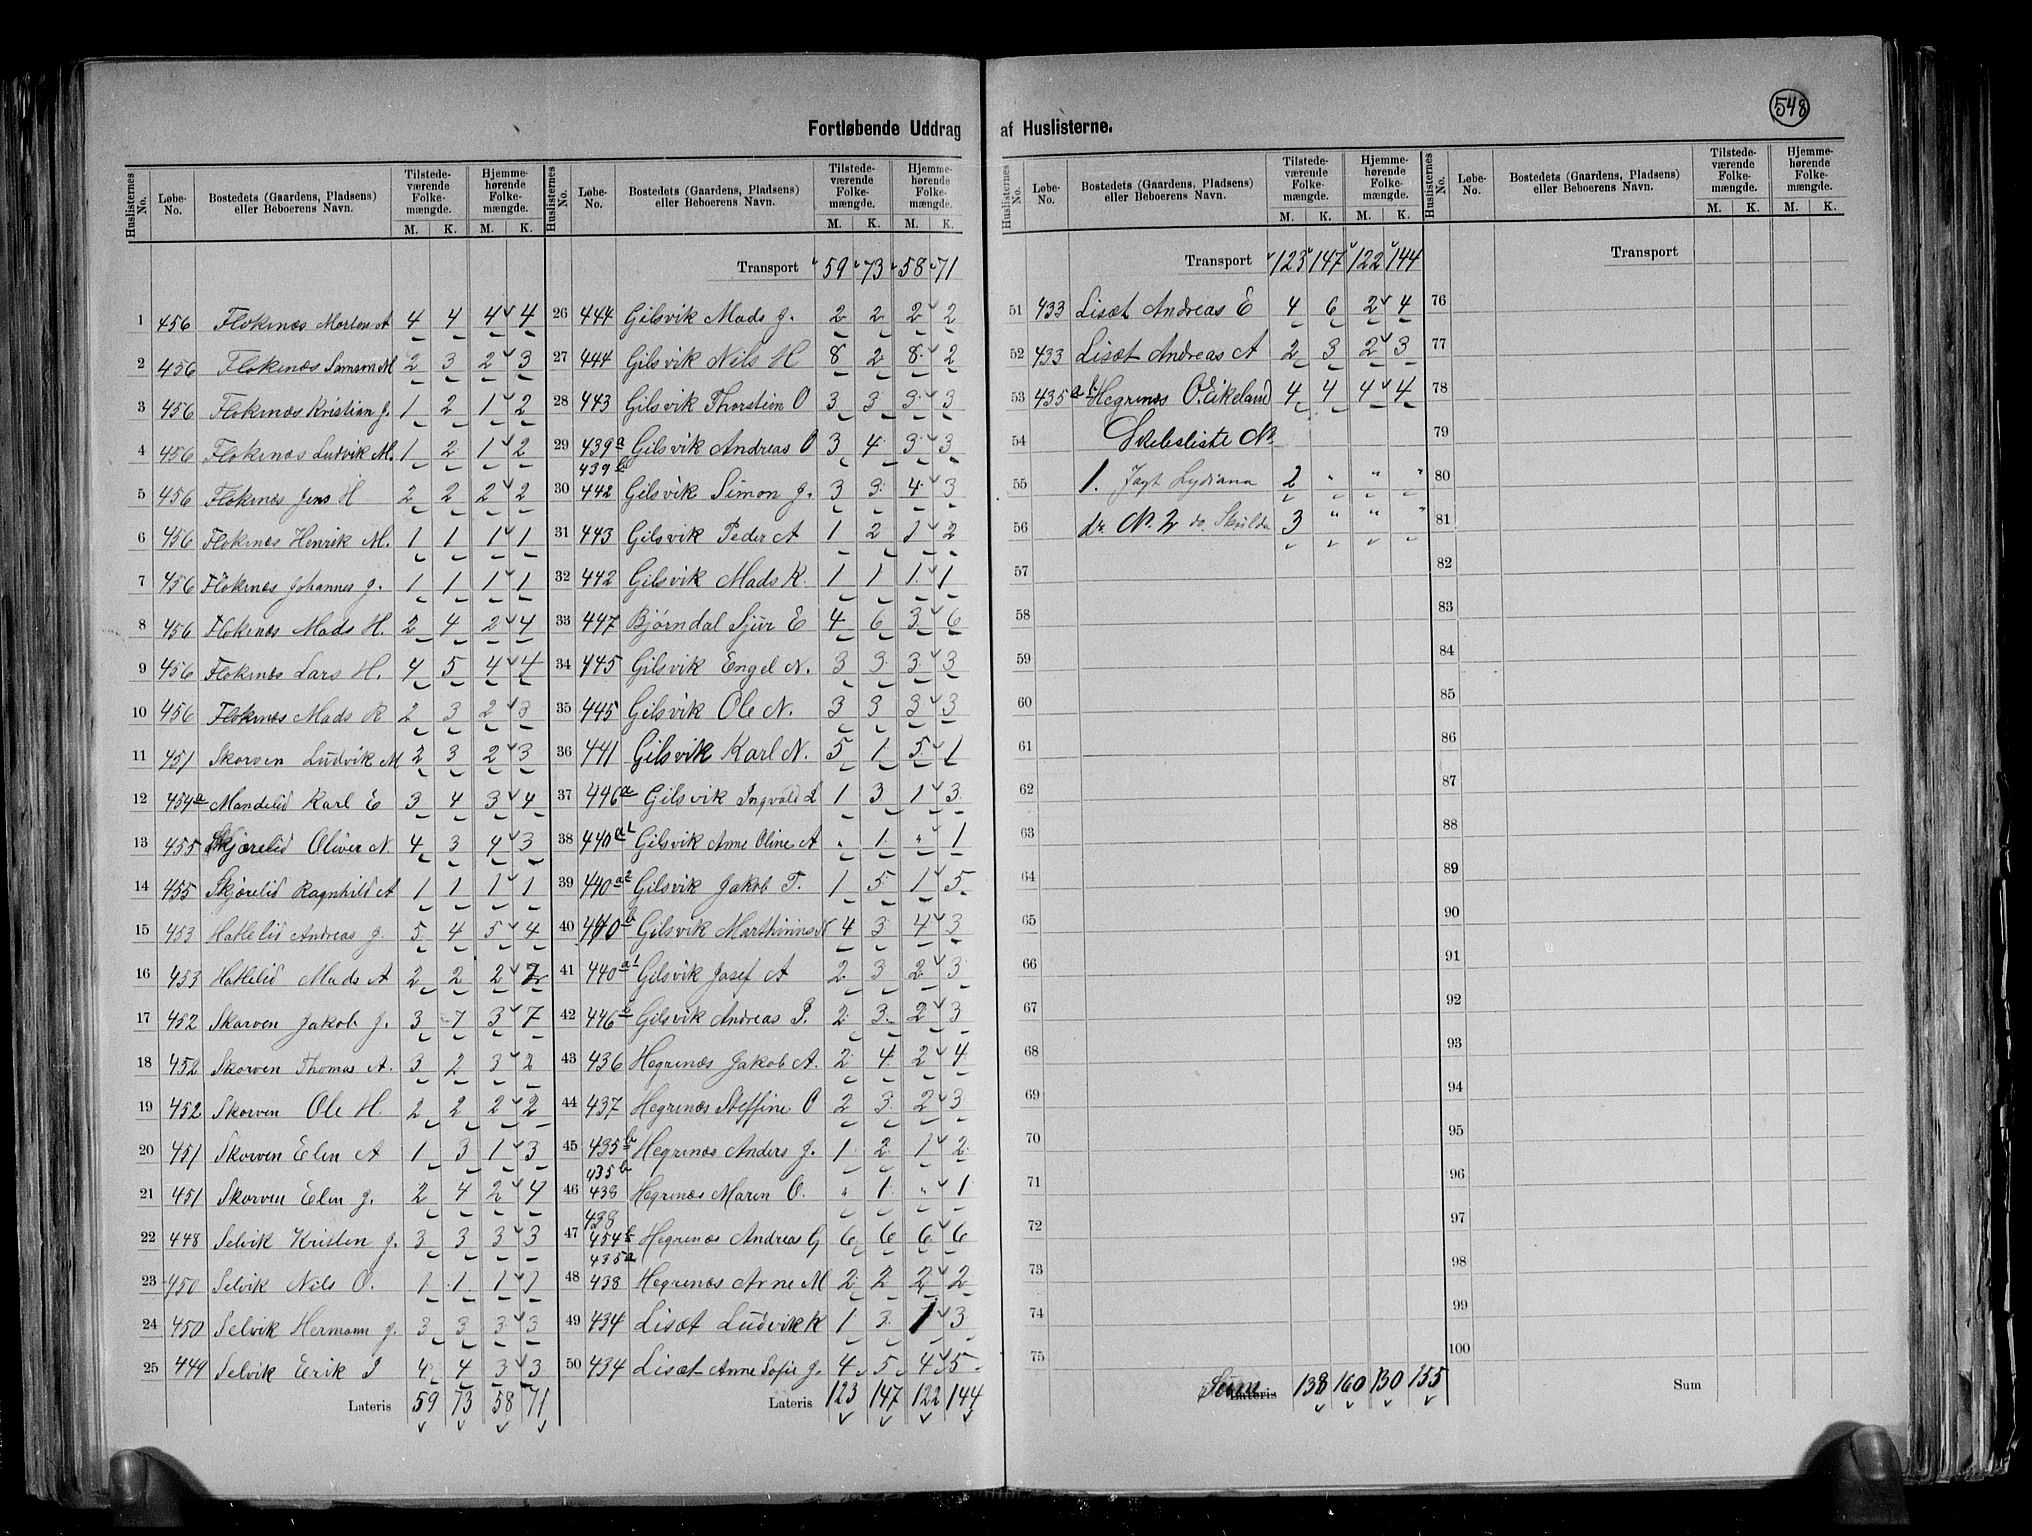 548
Fortløbende Uddrag af Huslisterne.
Huslisternes No. Løbe-No. Bostedets (Gaardens, Pladsens) eller Beboerens Navn. Tilstedeværende Folkemængde. M. K. Hjemmehørende Folkemængde. M. K.
1 456 Flokenæs Morten A 4 4 4 4
2 456 Flokenæs Samson M 2 3 2 3
3 456 Flokenæs Kristian J. 1 2 1 2
4 456 Flokenæs Ludvik M. 1 2 1 2
5 456 Flokenæs Jens H 2 2 2 2
6 456 Flokenæs Henrik M. 1 1 1 1
7 456 Flokenæs Johannes J. 1 1 1 1
8 456 Flokenæs Mads H. 2 4 2 4
9 456 Flokenæs Lars H. 4 5 4 4
10 456 Flokenæs Mads R 2 3 2 3
11 451 Skorven Ludvik M 2 3 2 3
12 454a Mandelid Karl E 3 4 3 4
13 455 Skjærelid Oliver N. 4 3 4 3
14 455 Skjærelid Ragnhild A 1 1 1 1
15 453 Hatlelid Andreas J. 5 4 5 4
16 453 Hatlelid Mads A 2 2 2 2
17 452 Skorven Jakob J. 3 7 3 7
18 452 Skorven Thomas A. 3 2 3 2
19 452 Skorven Ole H. 2 2 2 2
20 451 Skorven Elen A 1 3 1 3
21 451 Skorven Elen J. 2 4 2 4
22 448 Selvik Kristen J. 3 3 3 3
23 450 Selvik Nils O. 1 1 1 1
24 450 Selvik Hermann J. 3 3 3 3
25 449 Selvik Erik P 4 4 3 3
Lateris 59 73 58 71
Huslisternes No. Løbe-No. Bostedets (Gaardens, Pladsens) eller Beboerens Navn. Tilstedeværende Folkemængde. M. K. Hjemmehørende Folkemængde. M. K.
Transport 59 73 58 71
26 444 Gilsvik Mads J. 2 2 2 2
27 444 Gilsvik Nils H 8 2 8 2
28 443 Gilsvik Thorstein O 3 3 3 3
29 439a Gilsvik Andreas O 3 4 3 3
439b
30 442 Gilsvik Simon J. 3 3 4 3
31 443 Gilsvik Peder A 1 2 1 2
32 442 Gilsvik Mads K. 1 1 1 1
33 447 Bjørndal Sjur E 4 6 3 6
34 445 Gilsvik Engel N. 3 3 3 3
35 445 Gilsvik Ole N. 3 3 3 3
36 441 Gilsvik Karl N. 5 1 5 1
37 446a Gilsvik Ingvald L 1 3 1 3
38 440a1 Gilsvik Anne Oline A " 1 " 1
39 440a2 Gilsvik Jakob T. 1 5 1 5
40 440b Gilsvik Marthinus N 4 3 4 3
41 440a1 Gilsvik Josef A 2 3 2 3
42 446b Gilsvik Andreas P. 2 3 2 3
43 436 Hegrenæs Jakob A. 2 4 2 4
44 437 Hegrenæs Steffine O 2 3 2 3
45 435b Hegrenæs Anders J. 1 2 1 2
435b
46 438 Hegrenæs Maren O. " 1 " 1
438
47 454b Hegrenæs Andreas G 6 6 6 6
435a
48 438 Hegrenæs Arne M 2 2 2 2
49 434 Lisæt Ludvik K 1 3 1 3
50 434 Lisæt Anne Sofie J. 4 5 4 5
Lateris 123 147 122 144
Huslisternes No. Løbe-No. Bostedets (Gaardens, Pladsens) eller Beboerens Navn. Tilstedeværende Folkemængde. M. K. Hjemmehørende Folkemængde. M. K.
Transport 123 147 122 144
51 433 Lisæt Andreas E 4 6 2 4
52 433 Lisæt Andreas A 2 3 2 3
53 435a Hegrenæs O. Eikeland 4 4 4 4
54 Skibsliste No
55 1. Jagt Lydiana 2 " " "
56 do. No. 2 do. 3 " " "
57
58
59
60
61
62
63
64
65
66
67
68
69
70
71
72
73
74
75
Sum Lateris 138 160 130 155
Huslisternes No. Løbe-No. Bostedets (Gaardens, Pladsens) eller Beboerens Navn. Tilstedeværende Folkemængde. M. K. Hjemmehørende Folkemængde. M. K.
Transport
76
77
78
79
80
81
82
83
84
85
86
87
88
89
90
91
92
93
94
95
96
97
98
99
100
Sum